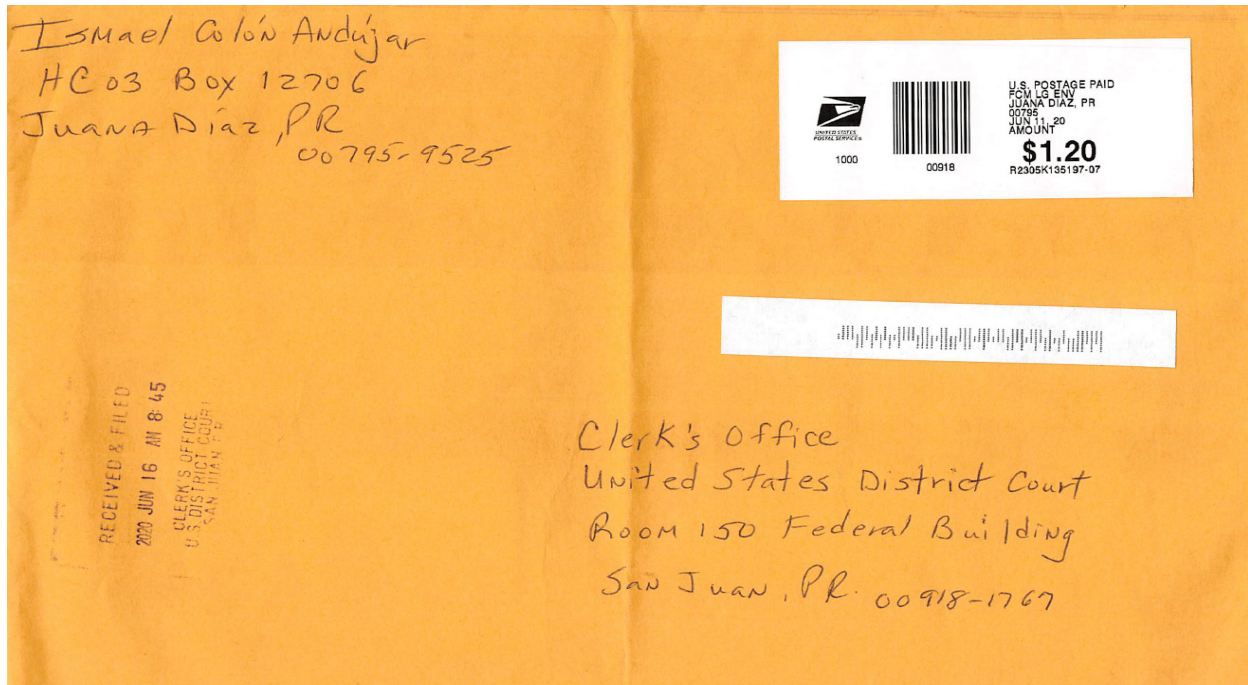 Ismael Colón Andújar
HC 03 Box 12706
Juana Díaz, PR
00795-9525
UNITED STATES
POSTAL SERVICE®
1000
00918
U.S. POSTAGE PAID
FCM LG ENV
JUANA DIAZ, PR
00795
JUN 11, 20
AMOUNT
$1.20
R2305K135197-07
RECEIVED & FILED
2020 JUN 16 AM 8:45
CLERK'S OFFICE
U.S DISTRICT COURT
SAN JUAN PR
Clerk's Office
United States District Court
Room 150 Federal Building
San Juan, PR. 00918-1767